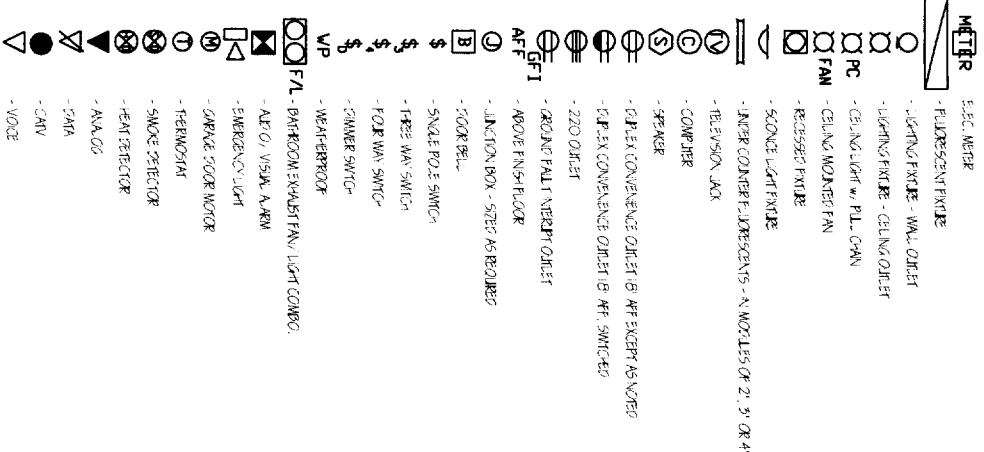 METER - ELEC. METER
- FLUORESCENT FIXTURE
- LIGHTING FIXTURE - WALL OUTLET
- LIGHTING FIXTURE - CEILING OUTLET
PC - CEILING LIGHT w/ PULL CHAIN
FAN - CEILING MOUNTED FAN
- RECESSED FIXTURE
- SCONCE LIGHT FIXTURE
- UNDER COUNTER FLUORESCENTS - IN MODULES OF 2', 3' OR 4'
TV - TELEVISION JACK
C - COMPUTER
S - SPEAKER
- DUPLEX CONVENIENCE OUTLET 18" AFF EXCEPT AS NOTED
- DUPLEX CONVENIENCE OUTLET 18" AFF. SWITCHED
- 220 OUTLET
GFI - GROUND FAULT INTERRUPT OUTLET
AFF - ABOVE FINISH FLOOR
J - JUNCTION BOX - SIZED AS REQUIRED
B - DOOR BELL
$ - SINGLE POLE SWITCH
$3 - THREE WAY SWITCH
$4 - FOUR WAY SWITCH
$D - DIMMER SWITCH
WP - WEATHERPROOF
F/L - BATHROOM EXHAUST FAN/ LIGHT COMBO.
- AUDIO/ VISUAL ALARM
- EMERGENCY LIGHT
M - GARAGE DOOR MOTOR
T - THERMOSTAT
- SMOKE DETECTOR
- HEAT DETECTOR
- ANALOG
- DATA
- CATV
- VOICE